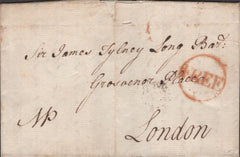 Sir James Tylney Long Bart
Grosvenor Place
FREE
London